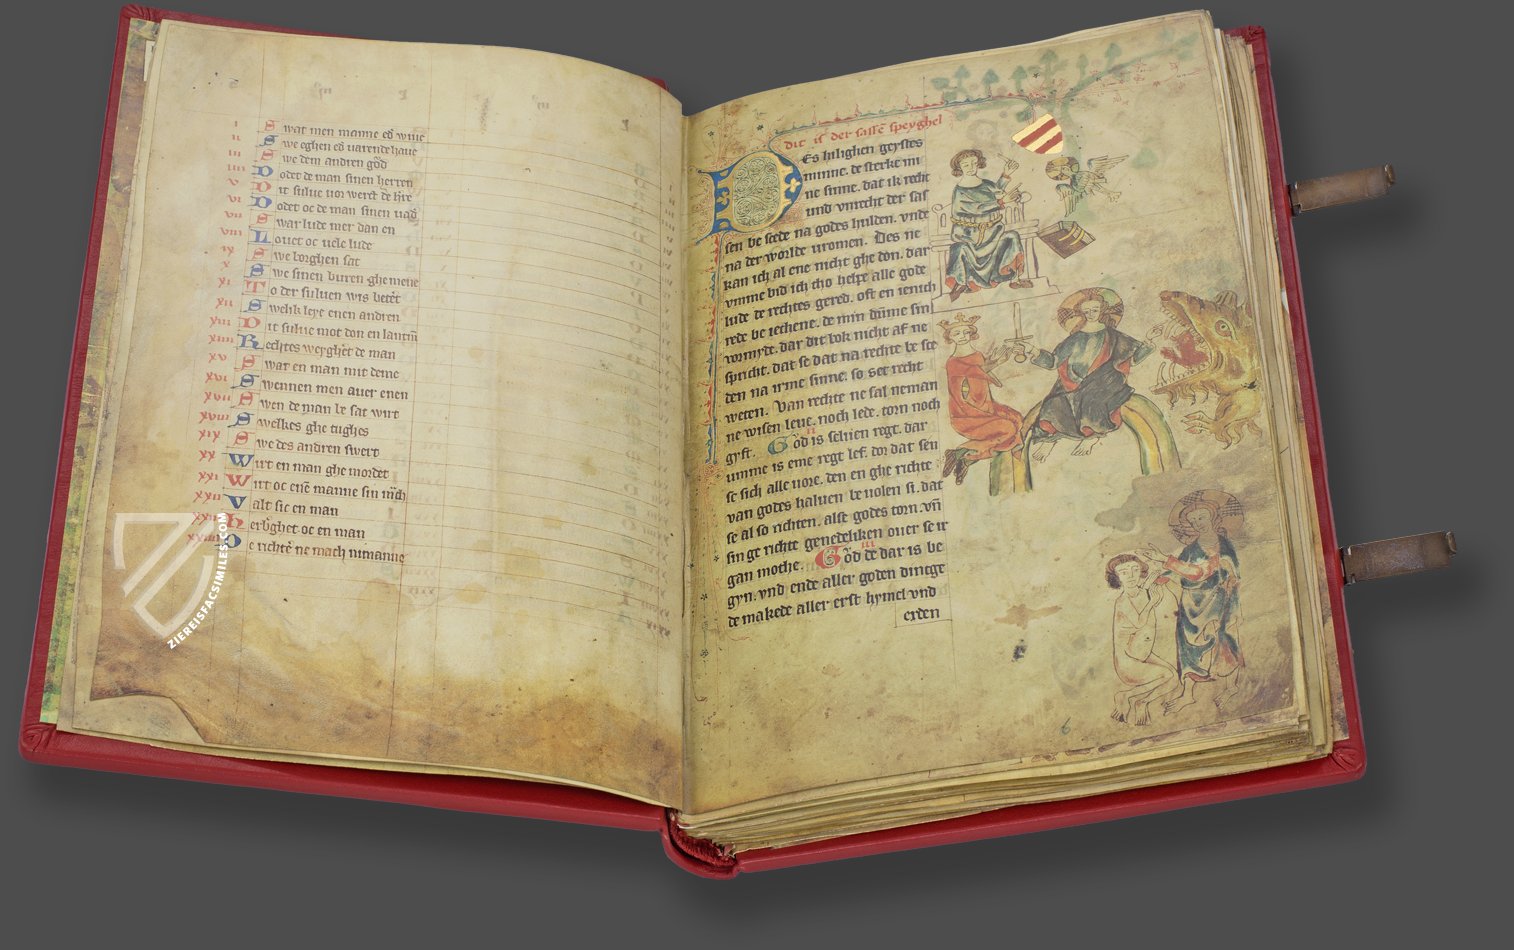 i Swat men manne ed wiue
ii Swe eghen ed uarende haue
iii Swe dem andren god
iiii Odet de man sinen herren
v Dit sulue uor wert de h're
vi Odet oc de man sinen uad
vii Swar lude mer dan en
viii Louet oc uele lude
ix Swe borghen sat
x Swe sinen buren ghemene
xi To der suluen wis betet
xii Swelik leye enen andren
xiii Dit sulue mot don en
xiiii Rechtes weyghet de man
xv Swar en man mit deme
xvi Swennen men auer enen
xvii Swen de man be sat wirt
xviii Swelkes ghe tughes
xix Swe des andren swert
xx Wirt en man ghe mordet
xxi Wirt oc enē manne sin
xxii Valt sic en man
herbghet oc en man
e richtē ne mach nimanne
ZIEREISFACSIMILES.COM
dit is der sassē speyghel
Des hilighen geystes
minne. de sterke mi
ne sinne. dat ik recht
und vnrecht der sas
sen be scede na godes hulden. vnde
na der worlde uromen. Des ne
kan ich al ene nicht ghe don. dar
vmme bid ich tho helpe alle gode
lude de rechtes gered. oft en ienich
rede be iechene. de min dūme sin
vormyde. dar dit bok nicht af ne
spricht. dat se dat na rechte be sce
den na irme sinne. so set recht
weten. Van rechte ne sal neman
ne wisen leue. noch lede. torn noch
gyft. God is seluen regt. dar
umme is eme regt lef. dor dat sen
se sich alle uore. den en ghe richte
van godes haluen be uolen si. dat
se al so richten. alse godes torn. vn̄
sin ge richte genedeliken ouer se ir
gan mothe. iii God de dar is be
gyn. vnd ende aller goden dincge
de makede aller erst hymel vnd
erden
6